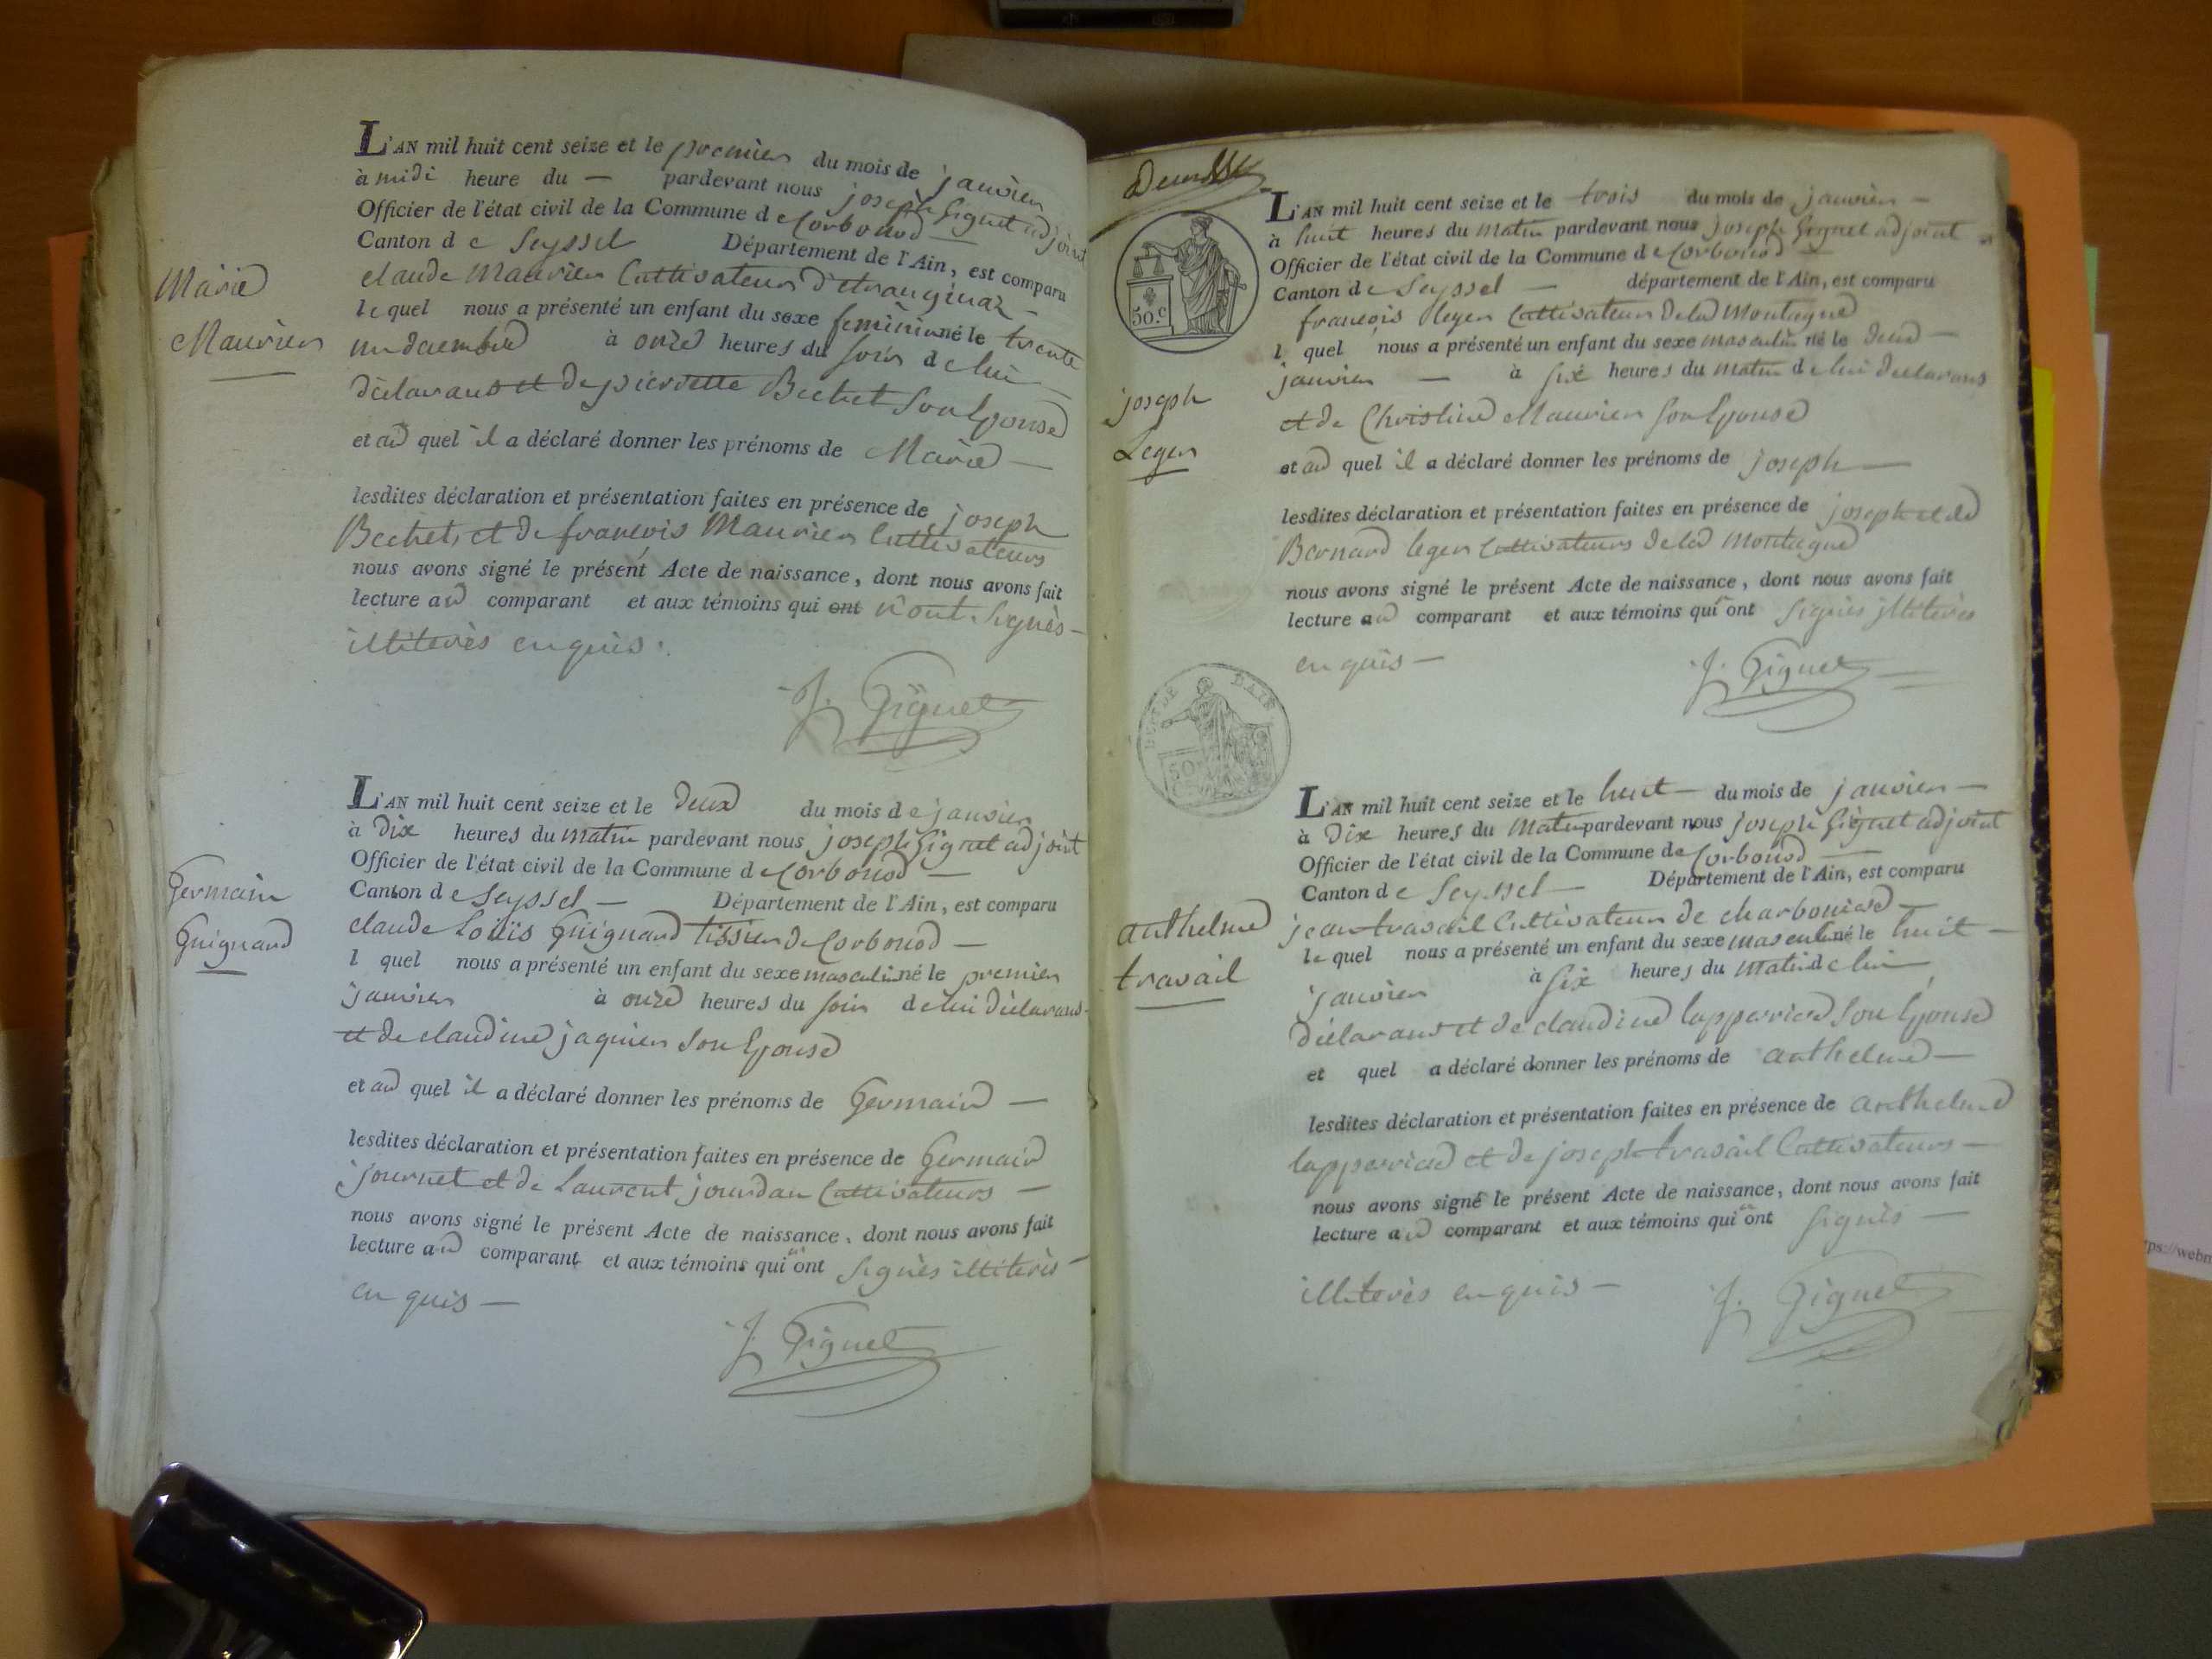 L'AN mil huit cent seize et le premier du mois de janvier
à midi heure du — pardevant nous joseph Gignet adjoint
Officier de l'état civil de la Commune de Corbonod —
Canton de Seyssel Département de l'Ain, est comparu
claude Maurier Cultivateur d'étranginaz —
lequel nous a présenté un enfant du sexe feminin né le trente
un decembre à onze heures du soir de lui
déclarant et de pierrette Bechet son Epouse
et au quel il a déclaré donner les prénoms de Marie —
lesdites déclaration et présentation faites en présence de joseph
Bechet, et de françois Maurier Cultivateurs
nous avons signé le présent Acte de naissance, dont nous avons fait
lecture au comparant et aux témoins qui ont n'ont signés —
illiterés enquis.
J. Gignet
Marie
Maurier
L'AN mil huit cent seize et le deux du mois de janvier
à Dix heures du matin pardevant nous joseph Gignet adjoint
Officier de l'état civil de la Commune de Corbonod —
Canton de Seyssel — Département de l'Ain, est comparu
claude Loüis Guignard tissier de Corbonod —
l quel nous a présenté un enfant du sexe masculin né le premier
janvier à onze heures du soir de lui déclarant
et de claudine jaquier son Epouse
et au quel il a déclaré donner les prénoms de Germain —
lesdites déclaration et présentation faites en présence de Germain
journet et de Laurent jourdan Cultivateurs —
nous avons signé le présent Acte de naissance, dont nous avons fait
lecture au comparant et aux témoins qui n'ont signés illiterés
enquis —
J. Gignet
Germain
Guignard
50.c
L'AN mil huit cent seize et le trois du mois de janvier —
à huit heures du matin pardevant nous joseph Gignet adjoint
Officier de l'état civil de la Commune de Corbonod —
Canton de Seyssel — département de l'Ain, est comparu
françois leger Cultivateur de la Montagne
l quel nous a présenté un enfant du sexe masculin né le deux —
janvier — à six heures du matin de lui declarant
et de Christine Maurier son Epouse
et au quel il a déclaré donner les prénoms de joseph —
lesdites déclaration et présentation faites en présence de joseph et de
Bernard leger Cultivateurs de la Montagne
nous avons signé le présent Acte de naissance, dont nous avons fait
lecture au comparant et aux témoins qui n'ont signés illiterés
enquis —
J. Gignet
joseph
Leger
DEPT DE L'AIN
50
L'AN mil huit cent seize et le huit — du mois de janvier —
à Dix heures du Matin pardevant nous joseph Gignet adjoint
Officier de l'état civil de la Commune de Corbonod —
Canton de Seyssel — Département de l'Ain, est comparu
jean travail Cultivateur de charboniere —
lequel nous a présenté un enfant du sexe masculin né le huit —
janvier à six heures du matin de lui
déclarant et de claudine lapperriere son Epouse
et quel a déclaré donner les prénoms de anthelme —
lesdites déclaration et présentation faites en présence de anthelme
lapperriere et de joseph travail Cultivateurs —
nous avons signé le présent Acte de naissance, dont nous avons fait
lecture au comparant et aux témoins qui n'ont signés —
illiterés enquis —
J. Gignet
anthelme
travail